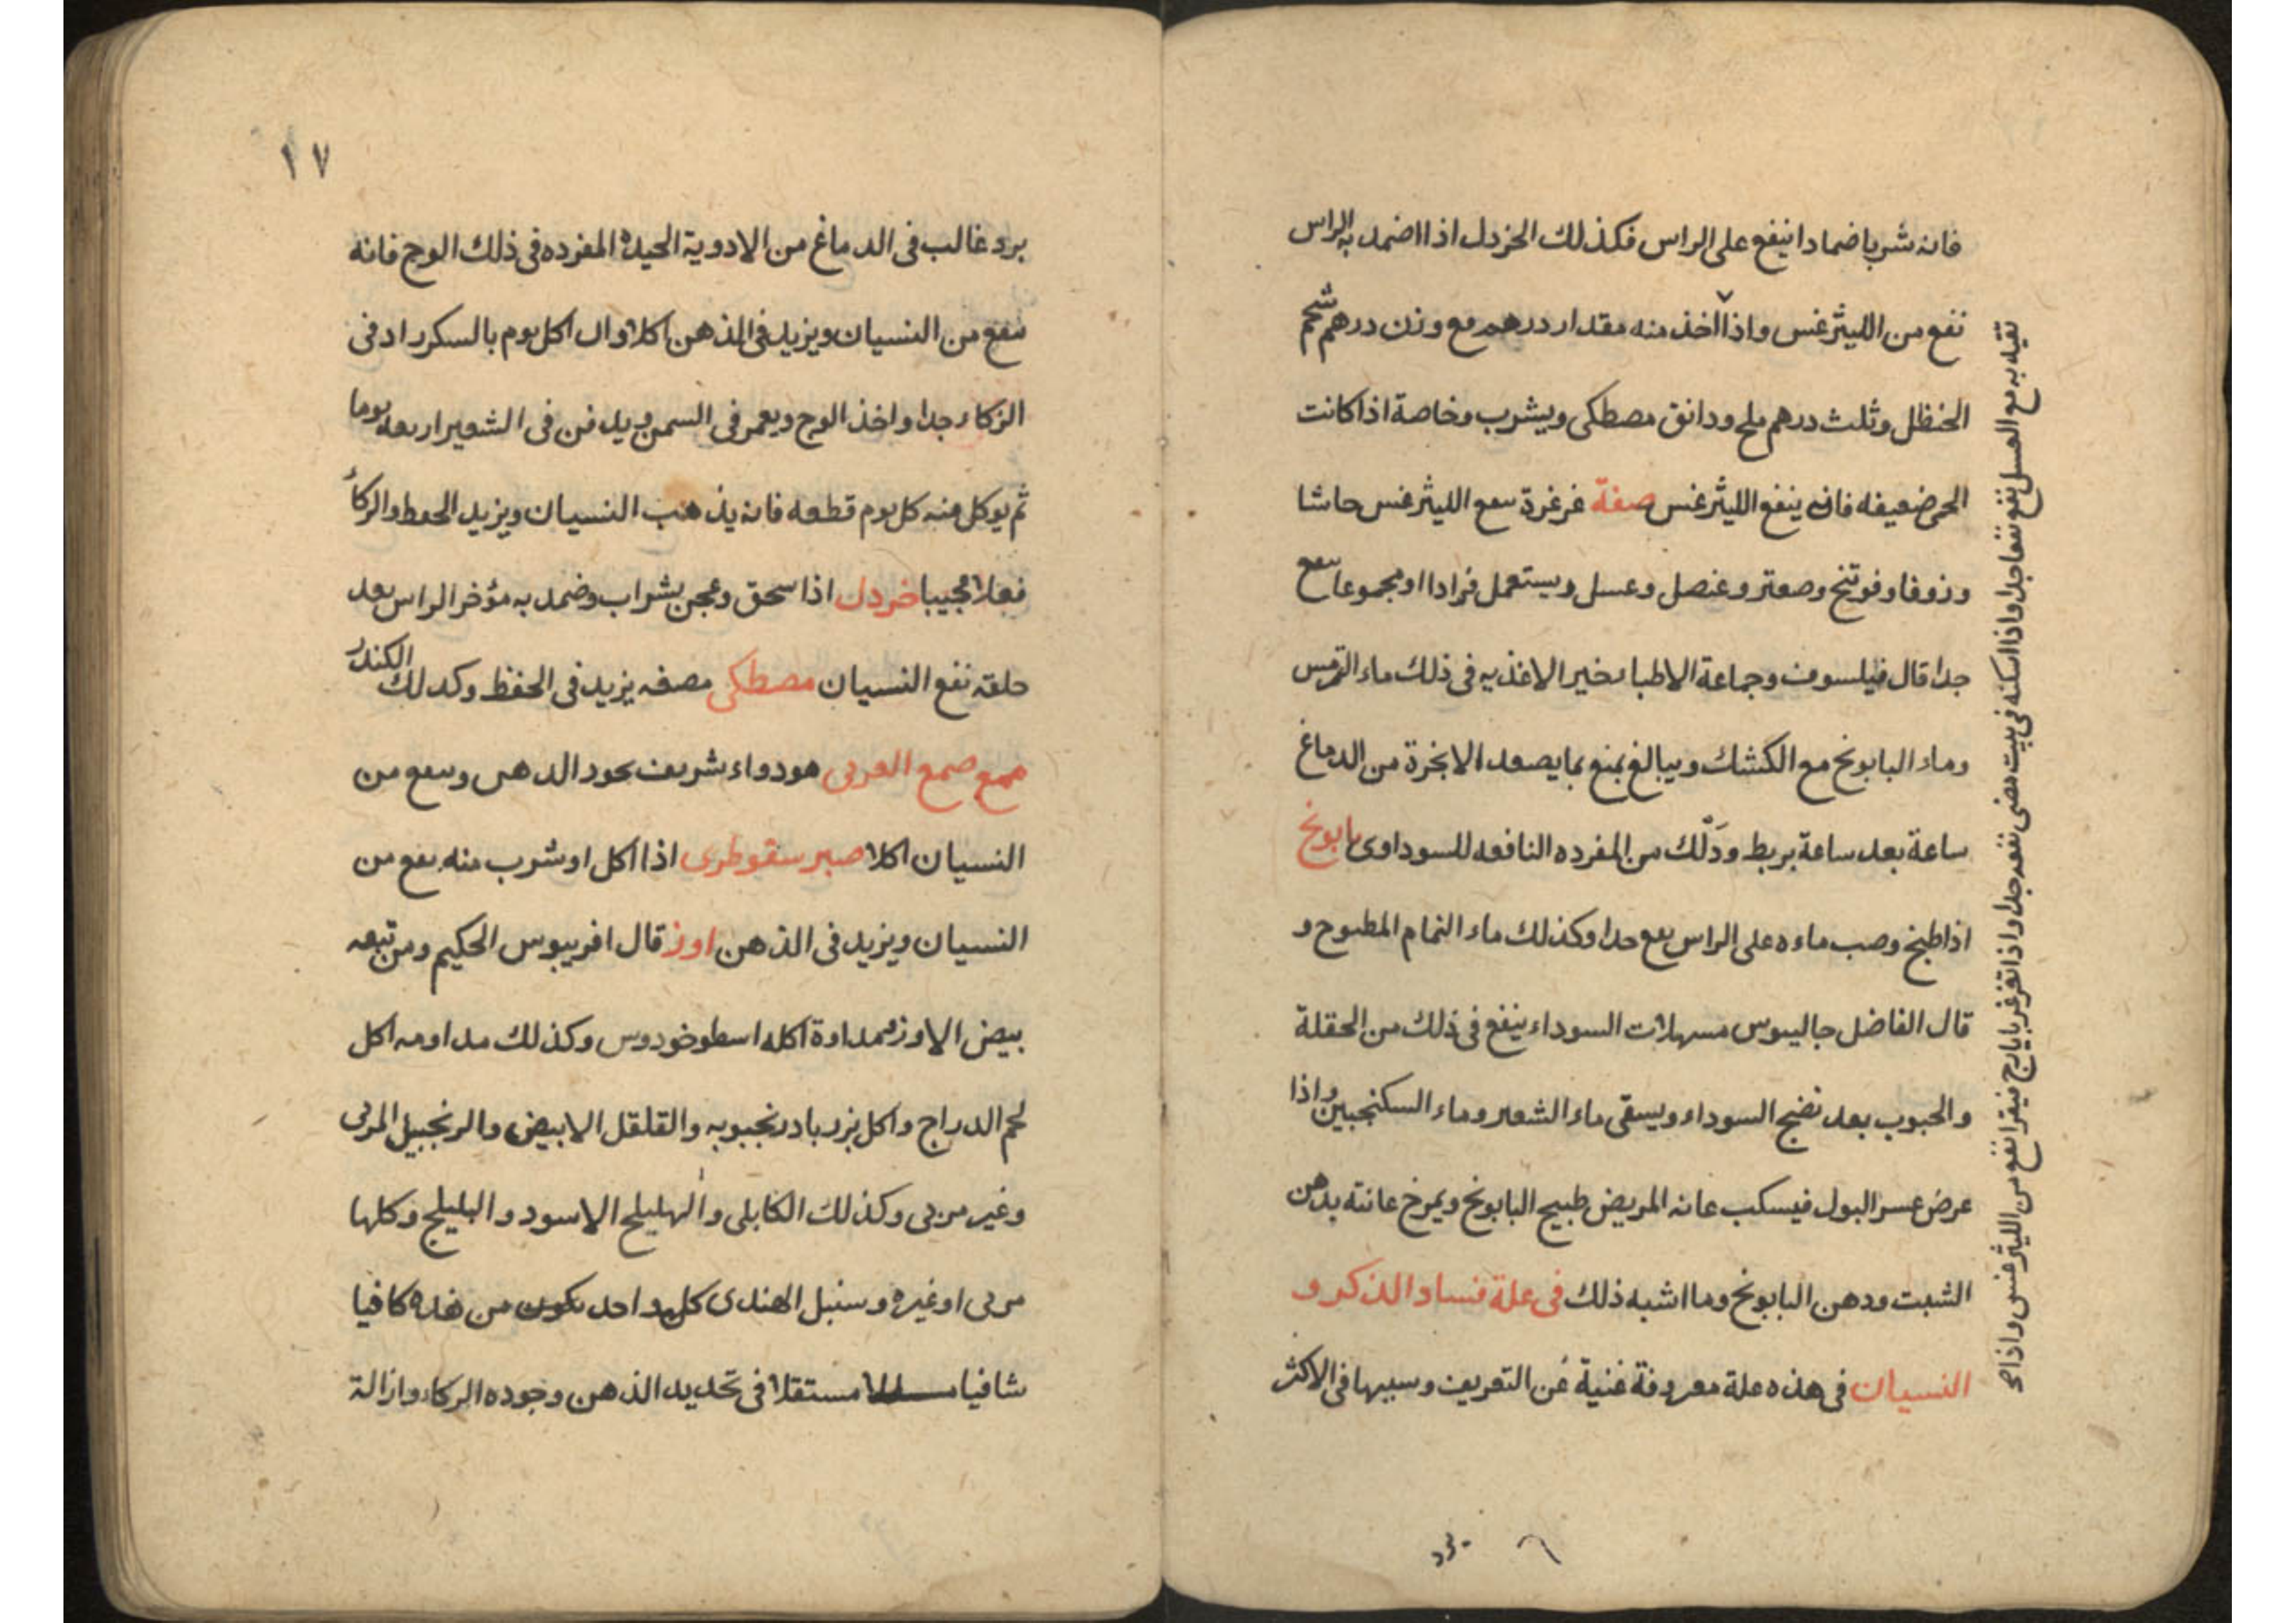 فانه شربا ضمادا ينفع على الراس فكذلك الخردل اذا اضمد به الراس
نفع من الليثرغس واذا اخذ منه مقدار درهم مع وزن درهم شحم
الحنظل وثلث درهم ملح ودانق مصطكى ويشرب وخاصة اذا كانت
الحمى ضعيفه فانه ينفع الليثرغس صفة غرغرة سفع الليثرغس حاشا
وزوفا وفوتنج وصعتر وعنصل وعسل ويستعمل فرادا او مجموعا سفع
جدا قال فيلسوف وجماعة الاطبا خير الاغذيه فى ذلك ماء الترمس
وماء البابونج مع الكشك ويبالغ بمنع بما يصعد الابخرة من الدماغ
ساعة بعد ساعة بربط ودلك من المفرده النافعه للسوداوى بابونج
اذا طبخ وصب ماءه على الراس سفع جدا وكذلك ماء النمام المطبوخ و
قال الفاضل جالينوس مسهلات السوداء ينفع فى ذلك من الحقلة
والحبوب بعد نضج السوداء ويسقى ماء الشعير وماء السكنجبين واذا
عرض عسر البول فيسكب عانه المريض طبيخ البابونج ويمرخ عانته بدهن
الشبت ودهن البابونج وما اشبه ذلك فى علة فساد الذكر و
النسيان فى هذه علة معروفة غنية عن التعريف وسببها فى الاكثر
تقيه به مع العسل نفع نفعا جدا واذا اسكنه فى بيت مضى نفعه جدا واذا تغرغر بايارج فيقرا نفع من الليثرغس واذا
برد
١٧
برد غالب فى الدماغ من الادوية الحيدة المفرده فى ذلك الوج فانه
سفع من النسيان ويزيد فى الذهن اكلا وان اكل يوم بالسكر زاد فى
الزكاء جدا واخذ الوج ويغمر فى السمن ويدفن فى الشعير اربعه يوما
ثم يوكل منه كل يوم قطعه فانه يذهب النسيان ويزيد الحفظ والزكأ
فعلا عجيبا خردل اذا سحق وعجن بشراب وضمد به مؤخر الراس بعد
حلقه نفع النسيان مصطكى مصفه يزيد فى الحفظ وكذلك الكندر
صمع العربى هو دواء شريف يجود الذهن وسفع من
النسيان اكلا صبر سقوطرى اذا اكل او شرب منه نفع من
النسيان ويزيد فى الذهن اوز قال افريبوس الحكيم ومن تبعه
بيض الاوز ممداوة اكله اسطوخودوس وكذلك مداومه اكل
لحم الدراج واكل بزر بادرنجبويه والقلقل الابيض والزنجبيل المربى
وغير مربى وكذلك الكابلى والهليلج الاسود والبليلج وكلها
مربى او غيره وسنبل الهندى كل واحد يكون من هذه كافيا
شافيا مستقلا فى تحديد الذهن وجوده الزكاء وازالة